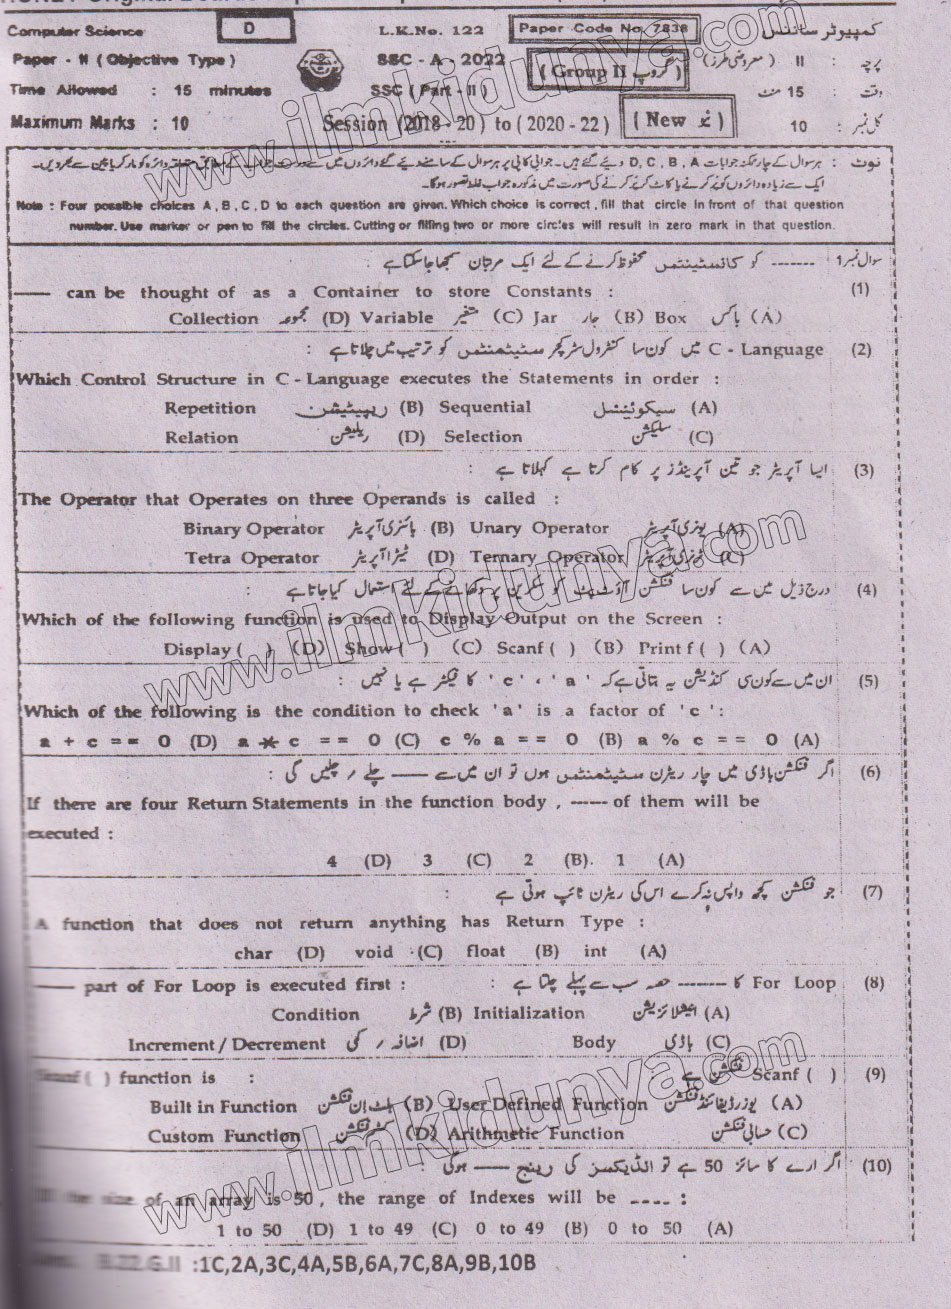 Computer Science D L.K.No. 122 Paper Code No. 7838 کمپیوٹر سائنس
Paper - II ( Objective Type ) SSC - A - 2022 ( Group II گروپ ) پرچہ : II ( معروضی طرز )
Time Allowed : 15 minutes SSC ( Part - II ) وقت : 15 منٹ
Maximum Marks : 10 Session (2018 - 20) to ( 2020 - 22 ) ( New نیو ) کل نمبر : 10
نوٹ : ہر سوال کے چار ممکنہ جوابات D , C , B , A دیئے گئے ہیں۔ جوابی کاپی پر ہر سوال کے سامنے دیئے گئے دائروں میں سے درست جواب کے مطابق متعلقہ دائرہ کو مارکر یا پین سے بھر دیں۔
ایک سے زیادہ دائروں کو پُر کرنے یا کاٹ کر پُر کرنے کی صورت میں مذکورہ جواب غلط تصور ہوگا۔
Note : Four possible choices A , B , C , D to each question are given. Which choice is correct , fill that circle in front of that question
number. Use marker or pen to fill the circles. Cutting or filling two or more circles will result in zero mark in that question.
سوال نمبر 1 ------- کو کانسٹینٹس محفوظ کرنے کے لئے ایک مرتبان سمجھا جا سکتا ہے :
(1) ------ can be thought of as a Container to store Constants :
Collection مجموعہ (D) Variable متغیر (C) Jar جار (B) Box باکس (A)
(2) C - Language میں کون سا کنٹرول سٹرکچر سٹیٹمنٹس کو ترتیب میں چلاتا ہے :
Which Control Structure in C - Language executes the Statements in order :
Repetition ریپیٹیشن (B) Sequential سیکوئنشل (A)
Relation ریلیشن (D) Selection سلیکشن (C)
(3) ایسا آپریٹر جو تین آپرینڈز پر کام کرتا ہے کہلاتا ہے :
The Operator that Operates on three Operands is called :
Binary Operator بائنری آپریٹر (B) Unary Operator یونری آپریٹر (A)
Tetra Operator ٹیٹرا آپریٹر (D) Ternary Operator ٹرنری آپریٹر (C)
(4) درج ذیل میں سے کون سا فنکشن آؤٹ پٹ کو سکرین پر دکھانے کے لئے استعمال کیا جاتا ہے :
Which of the following function is used to Display Output on the Screen :
Display ( ) (D) Show ( ) (C) Scanf ( ) (B) Print f ( ) (A)
(5) ان میں سے کون سی کنڈیشن یہ بتاتی ہے کہ ' a ' ، ' c ' کا فیکٹر ہے یا نہیں :
Which of the following is the condition to check ' a ' is a factor of ' c ' :
a + c == 0 (D) a * c == 0 (C) c % a == 0 (B) a % c == 0 (A)
(6) اگر فنکشن باڈی میں چار ریٹرن سٹیٹمنٹس ہوں تو ان میں سے ------ چلے / چلیں گی :
If there are four Return Statements in the function body , ----- of them will be
executed :
4 (D) 3 (C) 2 (B). 1 (A)
(7) جو فنکشن کچھ واپس نہ کرے اس کی ریٹرن ٹائپ ہوتی ہے :
A function that does not return anything has Return Type :
char (D) void (C) float (B) int (A)
(8) For Loop کا ------- حصہ سب سے پہلے چلتا ہے :
------ part of For Loop is executed first :
Condition شرط (B) Initialization انیشلائزیشن (A)
Increment / Decrement اضافہ / کمی (D) Body باڈی (C)
(9) Scanf ( ) فنکشن ہے
Scanf ( ) function is :
Built in Function بلٹ ان فنکشن (B) User Defined Function یوزر ڈیفائنڈ فنکشن (A)
Custom Function کسٹم فنکشن (D) Arithmetic Function حسابی فنکشن (C)
(10) اگر ارے کا سائز 50 ہے تو انڈیکسز کی رینج ------ ہوگی :
If the size of an array is 50 , the range of Indexes will be ---- :
1 to 50 (D) 1 to 49 (C) 0 to 49 (B) 0 to 50 (A)
:1C,2A,3C,4A,5B,6A,7C,8A,9B,10B
www.ilmkidunya.com
www.ilmkidunya.com
www.ilmkidunya.com